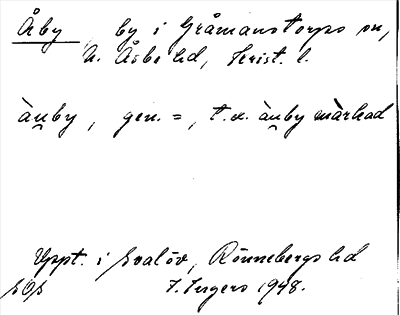 Åby, by i Gråmanstorps sn,
N. Åsbo hd, Krist. l.
àu̯by, gen. =, t.ex. àu̯by màrkad
Uppt. i Svalöv, Rönnebergs hd
I. Ingers 1948.